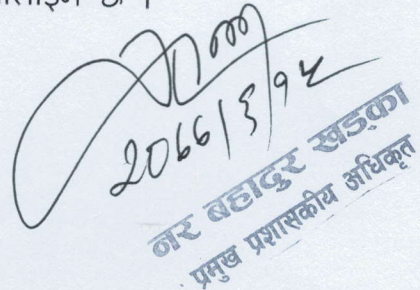 2066/3/15
नर बहादुर खड्का
प्रमुख प्रशासकीय अधिकृत